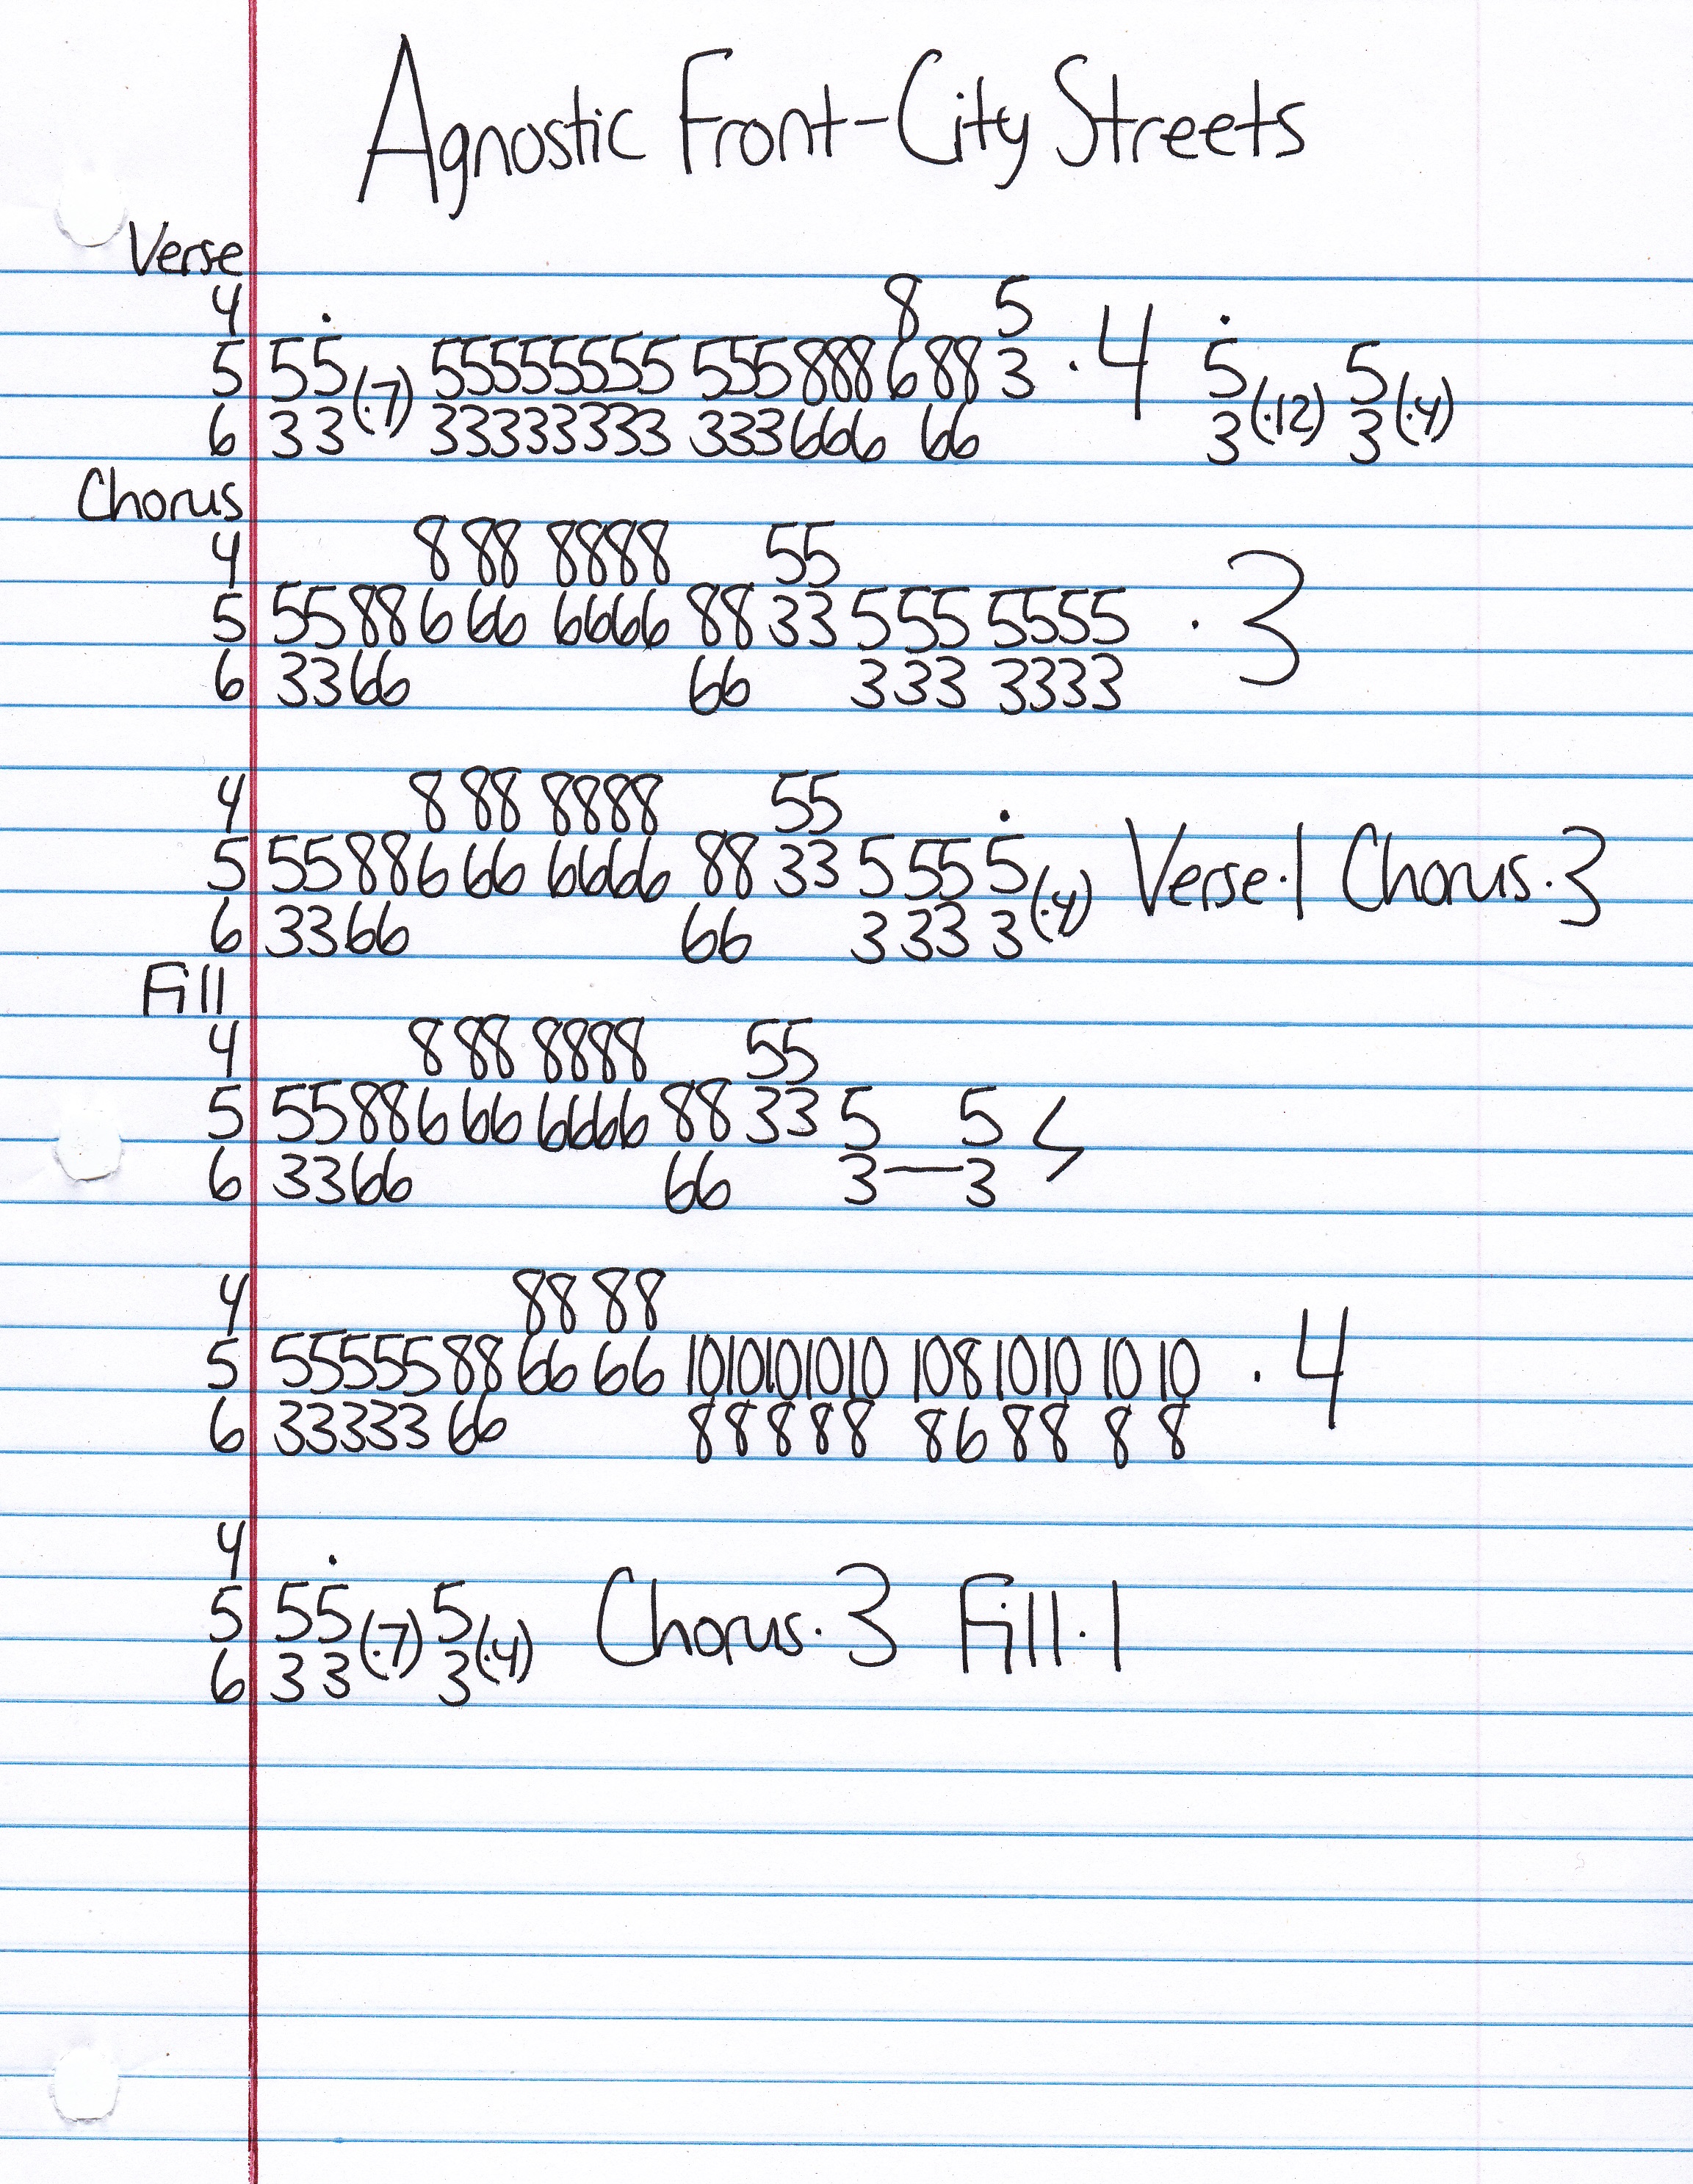 Agnostic Front-City Streets
Verse
4 8 5
5 55(·7) 55555555 555888688 3 ·4 5(·12) 5(·4)
6 33 33333333 333666 66 3 3
Chorus
4 8 88 8888 55
5 5588666 6666 88 33 555 5555 ·3
6 3366 66 333 3333
4 8 88 8888 55
5 55886 66 6666 88 33 5 55 5(·4) Verse·1 Chorus·3
6 3366 66 3 33 3
Fill
4 8 88 8888 55
5 55886 66 6666 88 33 5 5 <
6 3366 66 3—3
4 88 88
5 55555 88 66 66 1010101010 10 8 10 10 10 10 ·4
6 33333 66 88888 8 6 8 8 8 8
4
5 55(·7) 5(·4) Chorus·3 Fill·1
6 33 3